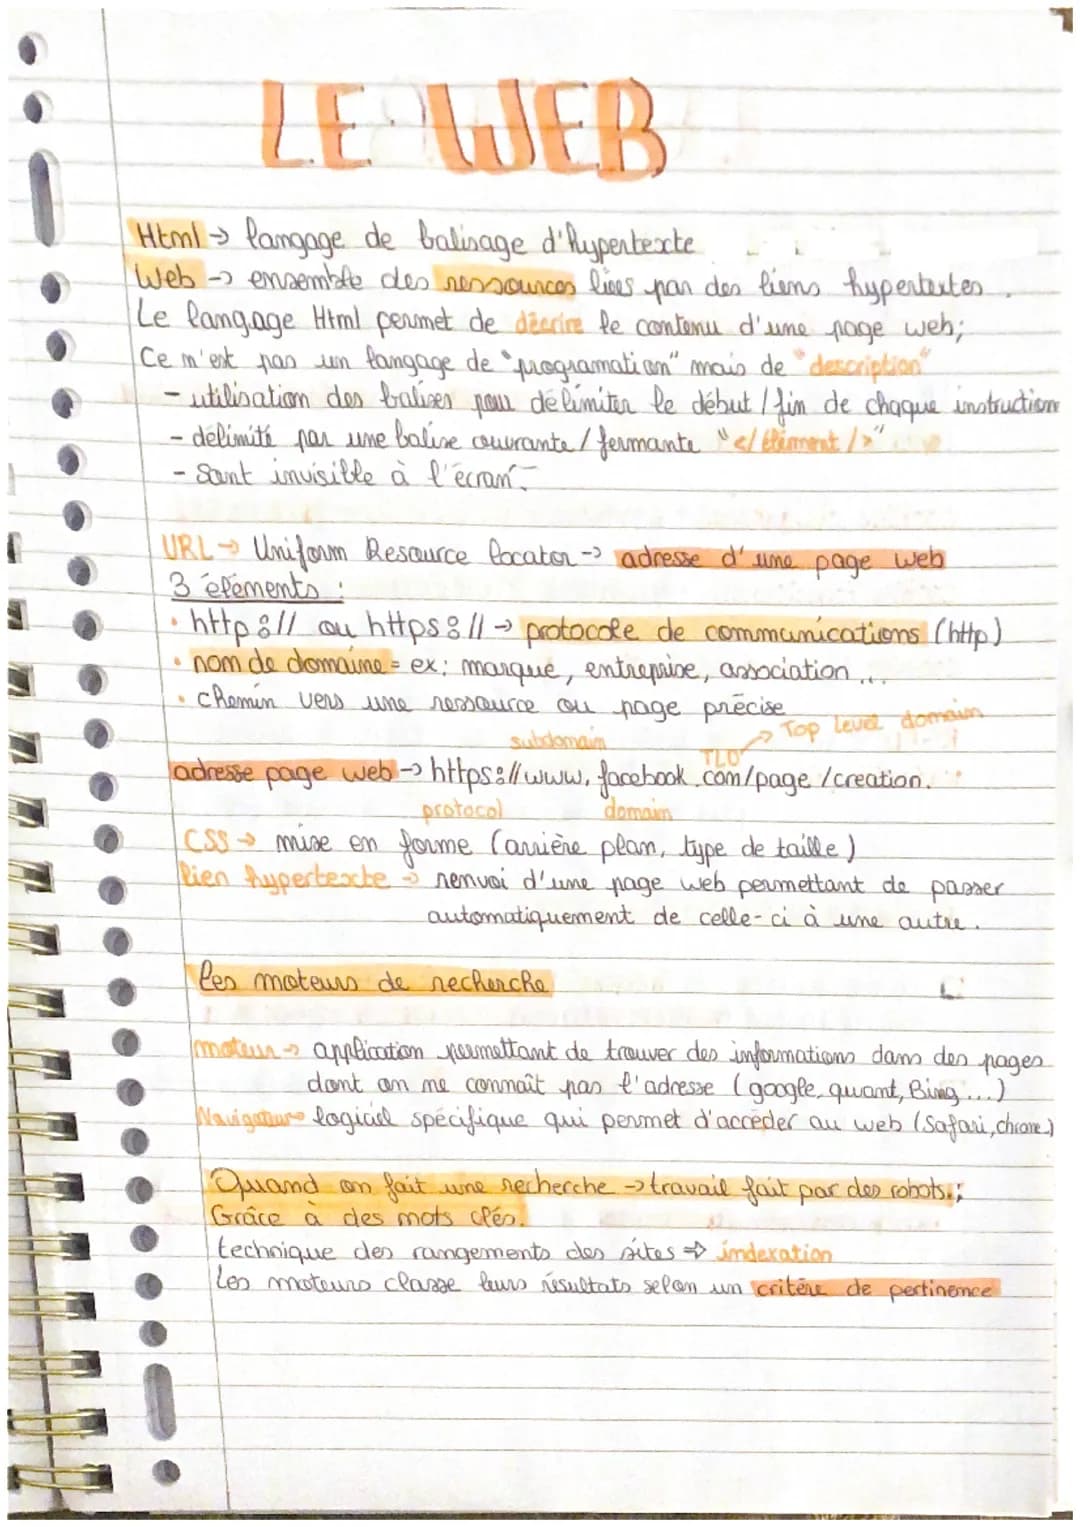 LE WEB
Html → langage de balisage d'hypertexte
Web → ensemble des ressources liées par des liens hypertextes.
Le langage Html permet de décrire le contenu d'une page web;
Ce n'est pas un langage de "programation" mais de "description"
- utilisation des balises pour délimiter le début / fin de chaque instruction
- délimité par une balise ouvrante / fermante "</élément/>"
- Sont invisible à l'écran.
URL → Uniform Resource locator → adresse d'une page web
3 éléments :
• http:// ou https:// → protocole de communications (http)
• nom de domaine = ex: marque, entreprise, association ...
• chemin vers une ressource ou page précise
subdomain TLD → Top Level domain
adresse page web → https://www.facebook.com/page/creation.
protocol domain
CSS → mise en forme (arrière plan, type de taille)
lien hypertexte → renvoi d'une page web permettant de passer
automatiquement de celle-ci à une autre.
Les moteurs de recherche
moteur → application permettant de trouver des informations dans des pages
dont on ne connaît pas l'adresse (google, quant, Bing ...)
Navigateur logiciel spécifique qui permet d'accéder au web (Safari, chrome)
Quand on fait une recherche → travail fait par des robots.;
Grâce à des mots clés.
technique des rangements des sites ⇒ indexation
Les moteurs classe leurs résultats selon un critère de pertinence